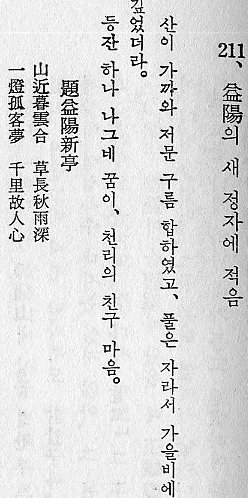 211、益陽의 새 정자에 적음
산이 가까와 저문 구름 합하였고、풀은 자라서 가을비에
깊었더라。
등잔 하나 나그네 꿈이、천리의 친구 마음。
題益陽新亭
山近暮雲合 草長秋雨深
一燈孤客夢 千里故人心